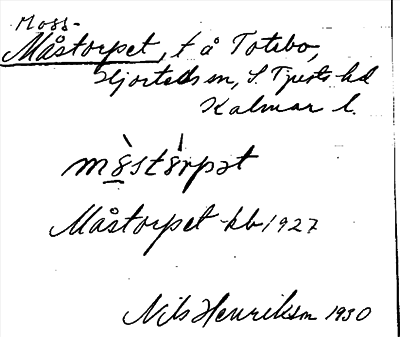 Moss-
Måstorpet, t å Totebo,
Hjorteds sn, S. Tjusts hd
Kalmar l.
mòstórpət
Måstorpet kb 1927
Nils Henrikson 1930